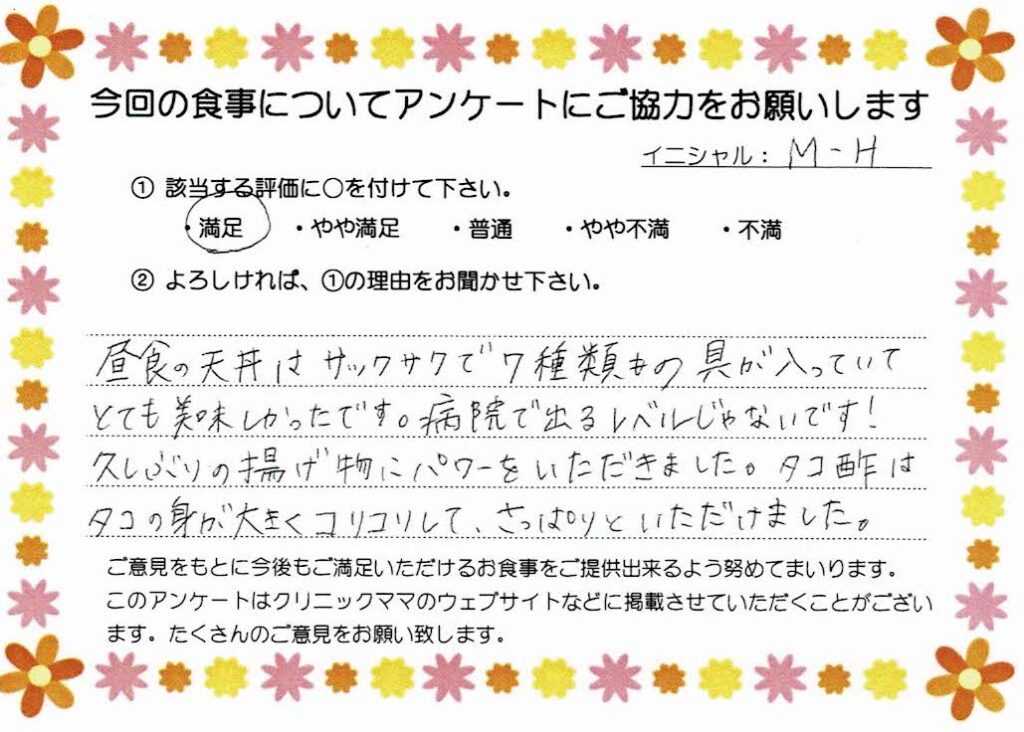 今回の食事についてアンケートにご協力をお願いします
イニシャル: M-H
① 該当する評価に○を付けて下さい。
・満足 ・やや満足 ・普通 ・やや不満 ・不満
② よろしければ、①の理由をお聞かせ下さい。
昼食の天丼はサックサクで7種類もの具が入っていて
とても美味しかったです。病院で出るレベルじゃないです!
久しぶりの揚げ物にパワーをいただきました。タコ酢は
タコの身が大きくコリコリして、さっぱりといただけました。
ご意見をもとに今後もご満足いただけるお食事をご提供出来るよう努めてまいります。
このアンケートはクリニックママのウェブサイトなどに掲載させていただくことがござい
ます。たくさんのご意見をお願い致します。